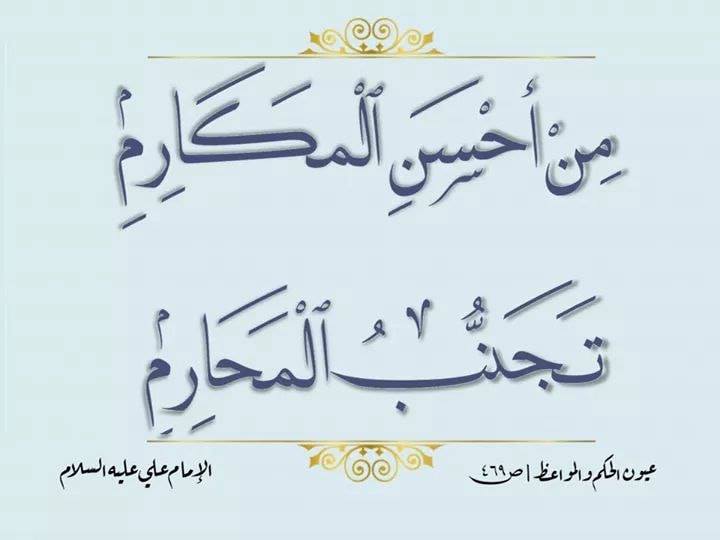 مِنْ أَحْسَنِ ٱلْمَكَارِمِ
تَجَنُّبُ ٱلْمَحَارِمِ
عيون الحكم والمواعظ | ص ٤٦٩
الإمام علي عليه السلام